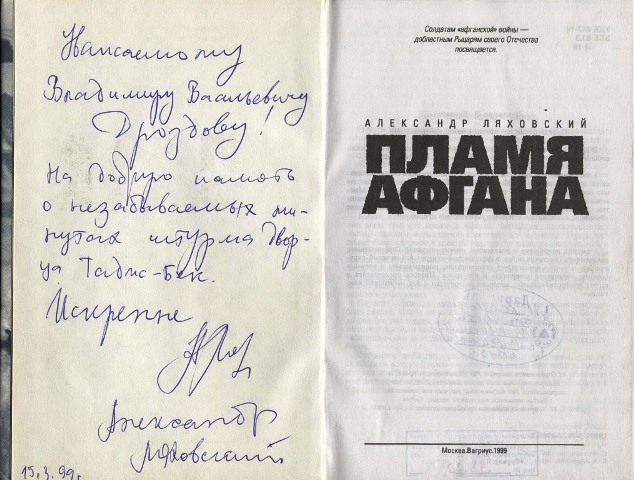 Владимиру Васильевичу
Дроздову!
На добрую память
о незабываемых ми-
нутах штурма двор-
ца Тадж-Бек.
Искренне
Александр
Ляховский
15.3.99г.
Солдатам «афганской» войны —
доблестным Рыцарям своего Отечества
посвящается.
АЛЕКСАНДР ЛЯХОВСКИЙ
ПЛАМЯ
АФГАНА
Москва.Вагриус.1999